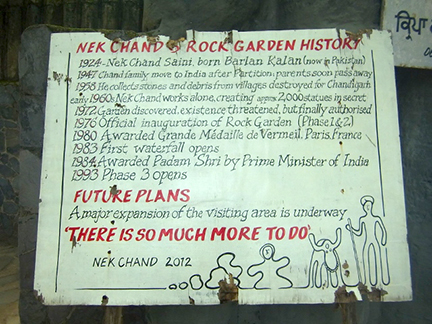 NEK CHAND & ROCK GARDEN HISTORY
1924 - Nek Chand Saini, born Barian Kalan (now in Pakistan)
1947 Chand family move to India after Partition; parents soon pass away
1958 He collects stones and debris from villages destroyed for Chandigarh
early 1960s Nek Chand works alone, creating approx 2,000 statues in secret
1972 Garden discovered, existence threatened, but finally authorised
1976 Official inauguration of Rock Garden (Phase 1&2)
1980 Awarded Grande Médaille de Vermeil, Paris, France
1983 First waterfall opens
1984 Awarded Padam Shri by Prime Minister of India
1993 Phase 3 opens
FUTURE PLANS
A major expansion of the visiting area is underway
'THERE IS SO MUCH MORE TO DO'
NEK CHAND 2012